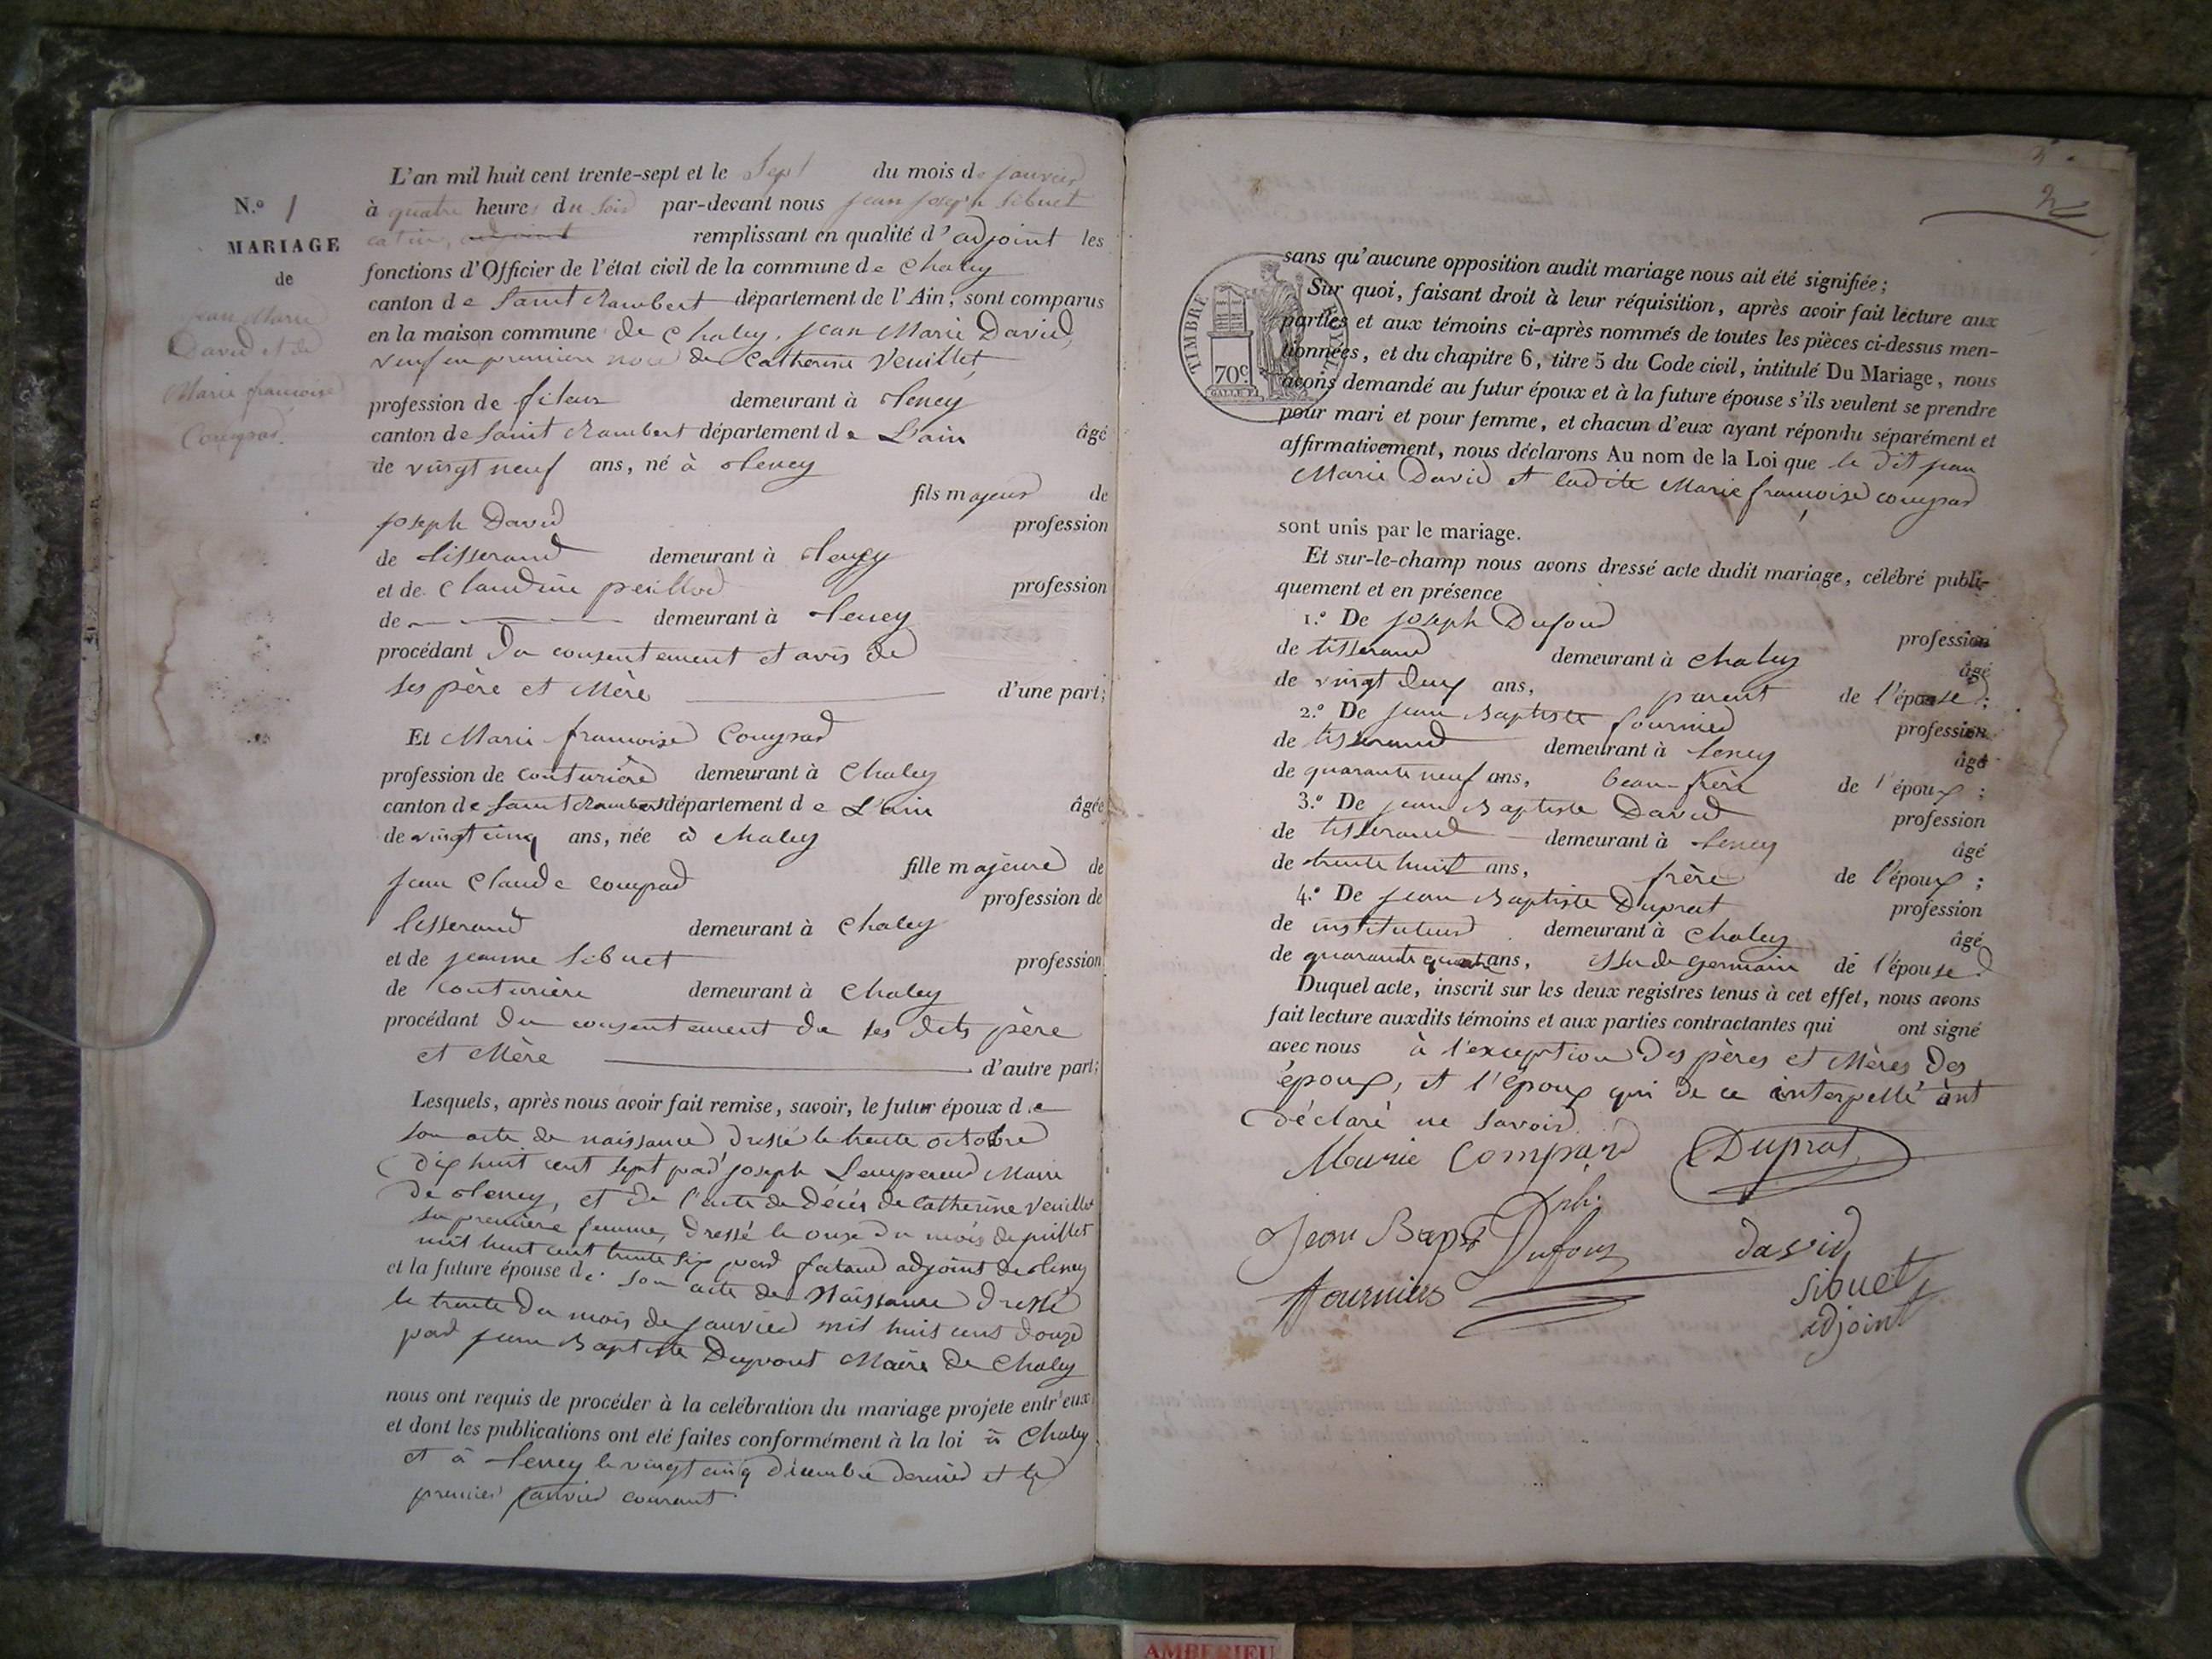 N.º 1
MARIAGE
de
Jean Marie
David et de
Marie françoise
Compard
L'an mil huit cent trente-sept et le Sept du mois de janvier
à quatre heures du soir par-devant nous jean joseph Sibuet
remplissant en qualité d'adjoint les
fonctions d'Officier de l'état civil de la commune de Chaley
canton de Saint Rambert département de l'Ain, sont comparus
en la maison commune de Chaley, jean Marie David,
veuf en premiere noce de Catherine Veuillet
profession de fileur demeurant à Teney
canton de Saint Rambert département de L'ain âgé
de vingt neuf ans, né à Teney
fils majeur de
joseph David profession
de tisserand demeurant à Teney
et de Claudine peillod profession
de demeurant à Teney
procédant du consentement et avis de
ses père et Mère d'une part;
Et Marie françoise Compard
profession de couturière demeurant à Chaley
canton de Saint Rambert département de L'ain âgée
de vingt cinq ans, née à Chaley
fille majeure de
jean Claude compard profession de
tisserand demeurant à Chaley
et de jeanne Sibuet profession
de couturière demeurant à Chaley
procédant du consentement de ses dits père
et Mère d'autre part;
Lesquels, après nous avoir fait remise, savoir, le futur époux de
son acte de naissance dressé le trente octobre
dix huit cent sept par joseph Maire
de Teney, et de l'acte de décès de Catherine Veuillet
sa première femme, dressé le onze du mois de juillet
mil huit cent trente six par adjoint de Teney
et la future épouse de son acte de Naissance dressé
le trente du mois de janvier mil huit cent douze
par jean Baptiste Maire de Chaley
nous ont requis de procéder à la célébration du mariage projeté entr'eux
et dont les publications ont été faites conformément à la loi à Chaley
et à Teney le vingt cinq décembre dernier et le
premier janvier courant
2
TIMBRE ROYAL
70c.
sans qu'aucune opposition audit mariage nous ait été signifiée;
Sur quoi, faisant droit à leur réquisition, après avoir fait lecture aux
parties et aux témoins ci-après nommés de toutes les pièces ci-dessus men-
tionnées, et du chapitre 6, titre 5 du Code civil, intitulé Du Mariage, nous
avons demandé au futur époux et à la future épouse s'ils veulent se prendre
pour mari et pour femme, et chacun d'eux ayant répondu séparément et
affirmativement, nous déclarons Au nom de la Loi que le dit jean
Marie David et ladite Marie françoise compard
sont unis par le mariage.
Et sur-le-champ nous avons dressé acte dudit mariage, célébré publi-
quement et en présence
1.º De joseph Dufour profession
de tisserand demeurant à Chaley âgé
de vingt deux ans, parent de l'épouse;
2.º De jean Baptiste fournier profession
de tisserand demeurant à Teney âgé
de quarante neuf ans, beau-frère de l'époux;
3.º De jean Baptiste David profession
de tisserand demeurant à Teney âgé
de trente huit ans, frère de l'époux;
4.º De jean Baptiste Duprat profession
de instituteur demeurant à Chaley âgé
de quarante quatre ans, issu de germain de l'épouse.
Duquel acte, inscrit sur les deux registres tenus à cet effet, nous avons
fait lecture auxdits témoins et aux parties contractantes qui ont signé
avec nous à l'exception des pères et Mères des
époux, et l'époux qui de ce interpellé ont
déclaré ne savoir.
Marie Compard Duprat
Jean Bapt Jph. Dufour david
fournier sibuet
adjoint
AMBERIEU